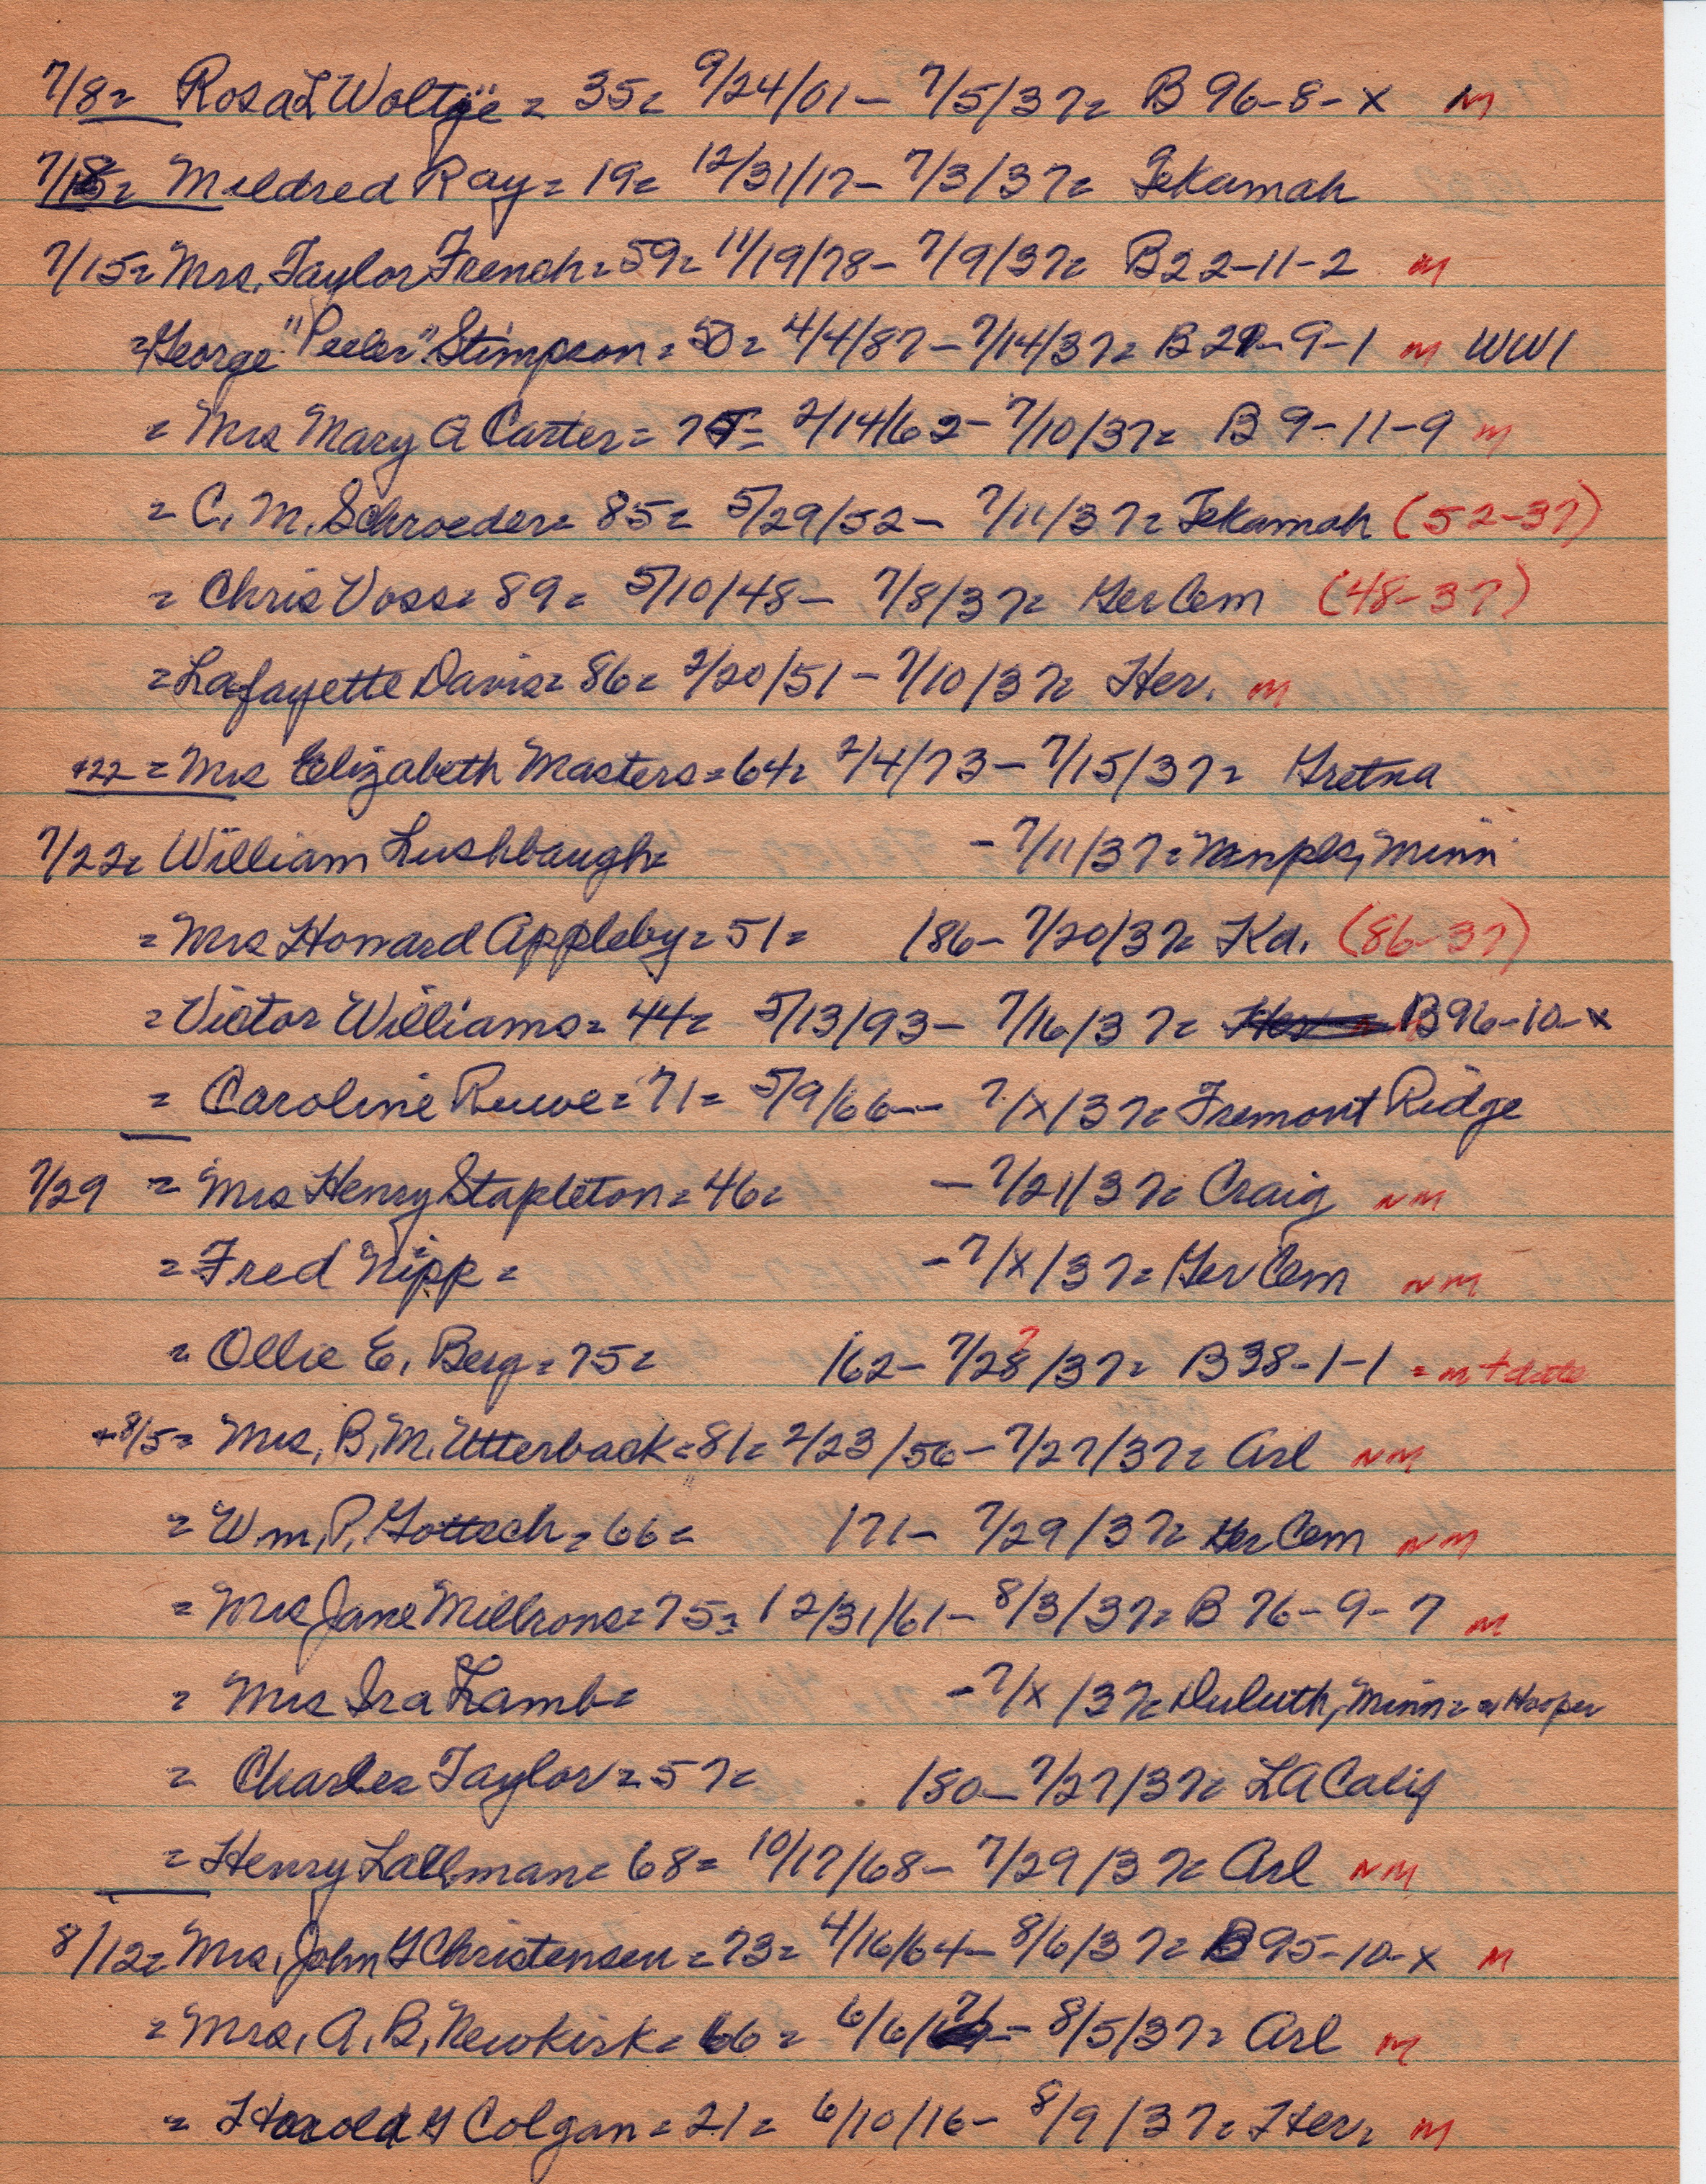 7/8= Rosa L Woltje = 35= 9/24/01 - 7/5/37= B 96-8-x M
7/15= Mildred Ray = 19= 12/31/17- 7/3/37= Tekamah
7/15= Mrs. Taylor French = 59= 11/19/78- 7/9/37= B22-11-2 M
= George "Peeler" Stimpson = 50= 4/4/87 - 7/14/37= B 29-9-1 M WW1
= Mrs Mary A Carter = 75= 2/14/62 - 7/10/37= B 9-11-9 M
= C. M. Schroeder= 85= 5/29/52 - 7/11/37= Tekamah (52-37)
= Chris Voss= 89= 5/10/48 - 7/8/37= Ger Cem (48-37)
= Lafayette Davis= 86= 2/20/51 - 7/10/37= Her. M
+22 = Mrs Elizabeth Masters = 64= 2/4/73 - 7/15/37= Gretna
7/22= William Lushbaugh= - 7/11/37= Mnpls, Minn
= Mrs Howard Appleby = 51= /86- 7/20/37= Ka. (86-37)
= Victor Williams= 44= 5/13/93 - 7/16/37= B96-10-x
= Caroline Ruwe = 71= 5/9/66 - 7/x/37= Fremont Ridge
7/29 = Mrs Henry Stapleton = 46= - 7/21/37= Craig NM
= Fred Nipp = - 7/x/37= Ger Cem NM
= Ollie E. Berg = 75= /62- 7/28/37= B 38-1-1 = M + date ?
+8/5= Mrs. B. M. Utterback = 81= 2/23/56 - 7/27/37= Arl NM
= Wm. P. Gottsch = 66= /71- 7/29/37= Ger Cem NM
= Mrs Jane Millrons= 75= 12/31/61- 8/3/37= B 76-9-7 M
= Mrs Ira Lamb= - 7/x/37= Duluth, Minn= Hooper
= Charles Taylor = 57= /80- 7/27/37= LA Calif
= Henry Lallman= 68= 10/17/68- 7/29/37= Arl NM
8/12= Mrs. John G Christensen = 73= 4/16/64- 8/6/37= B95-10-x M
= Mrs. A. B. Newkirk = 66= 6/6/71- 8/5/37= Arl M
= Harold G Colgan = 21= 6/10/16- 8/9/37= Her= M